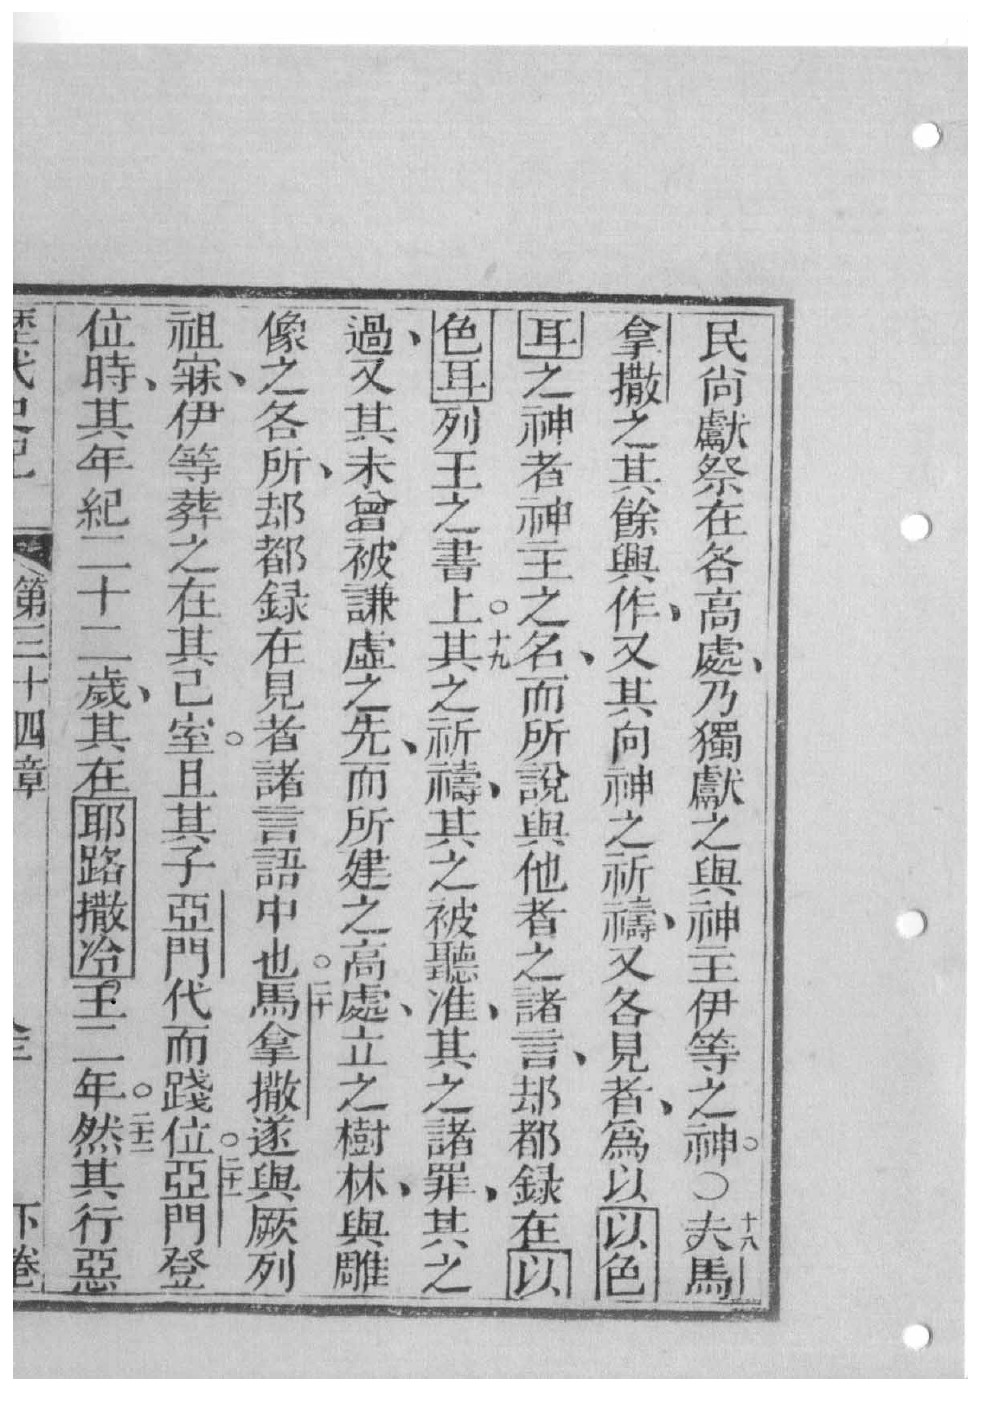 民尚獻祭在各高處、乃獨獻之與神主伊等之神。〇十八夫馬
拿撒之其餘與作、又其向神之祈禱、又各見者、爲以以色
耳之神者神主之名、而所說與他者之諸言、却都録在以
色耳列王之書上。十九其之祈禱、其之被聽准、其之諸罪、其之
過、又其未曾被謙虛之先、而所建之高處、立之樹林、與雕
像之各所、却都録在見者諸言語中也。二十馬拿撒遂與厥列
祖寐、伊等葬之在其己室。且其子亞門代而踐位。二十一亞門登
位時、其年紀二十二歲、其在耶路撒冷。王二年。二十二然其行惡
歷代史記 第三十四章 下卷